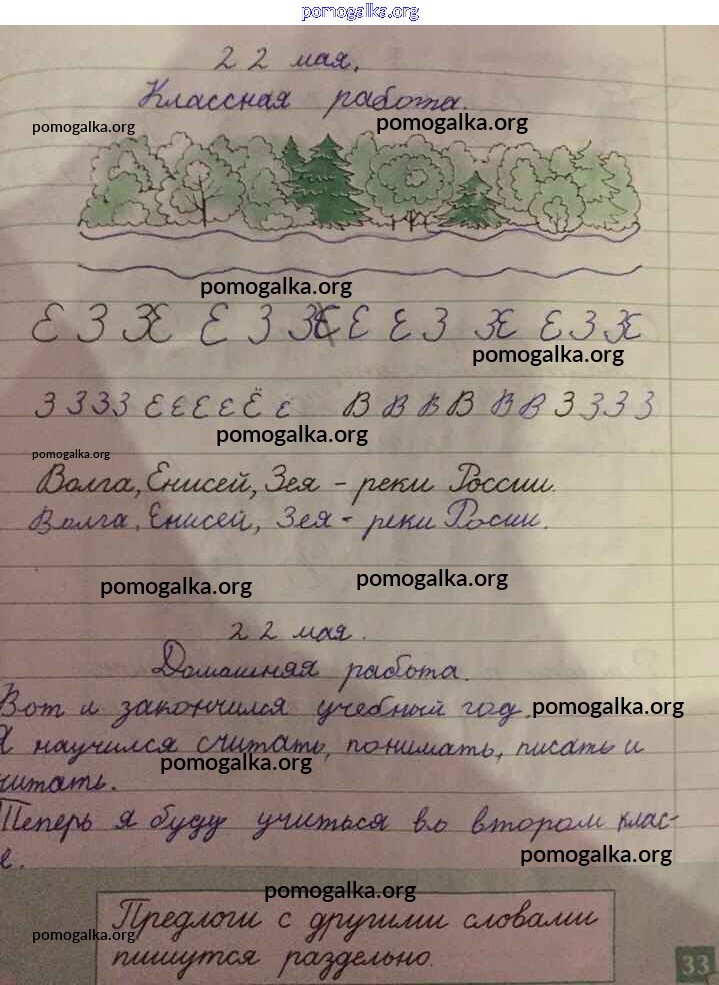 pomogalka.org
22 мая.
Классная работа.
pomogalka.org pomogalka.org
pomogalka.org
Е З Ж Е З Ж Е Е З Ж Е З Ж
pomogalka.org
З З З З Е Е Е Е Ё Е В В В В В В З З З З
pomogalka.org
pomogalka.org
Волга, Енисей, Зея - реки России.
Волга, Енисей, Зея - реки Росии.
pomogalka.org pomogalka.org
22 мая.
Домашняя работа.
Вот и закончился учебный год. pomogalka.org
Я научился считать, понимать, писать и
pomogalka.org
читать.
Теперь я буду учиться во втором клас-
е.
pomogalka.org
pomogalka.org
Предлоги с другими словами
pomogalka.org
пишутся раздельно.
33